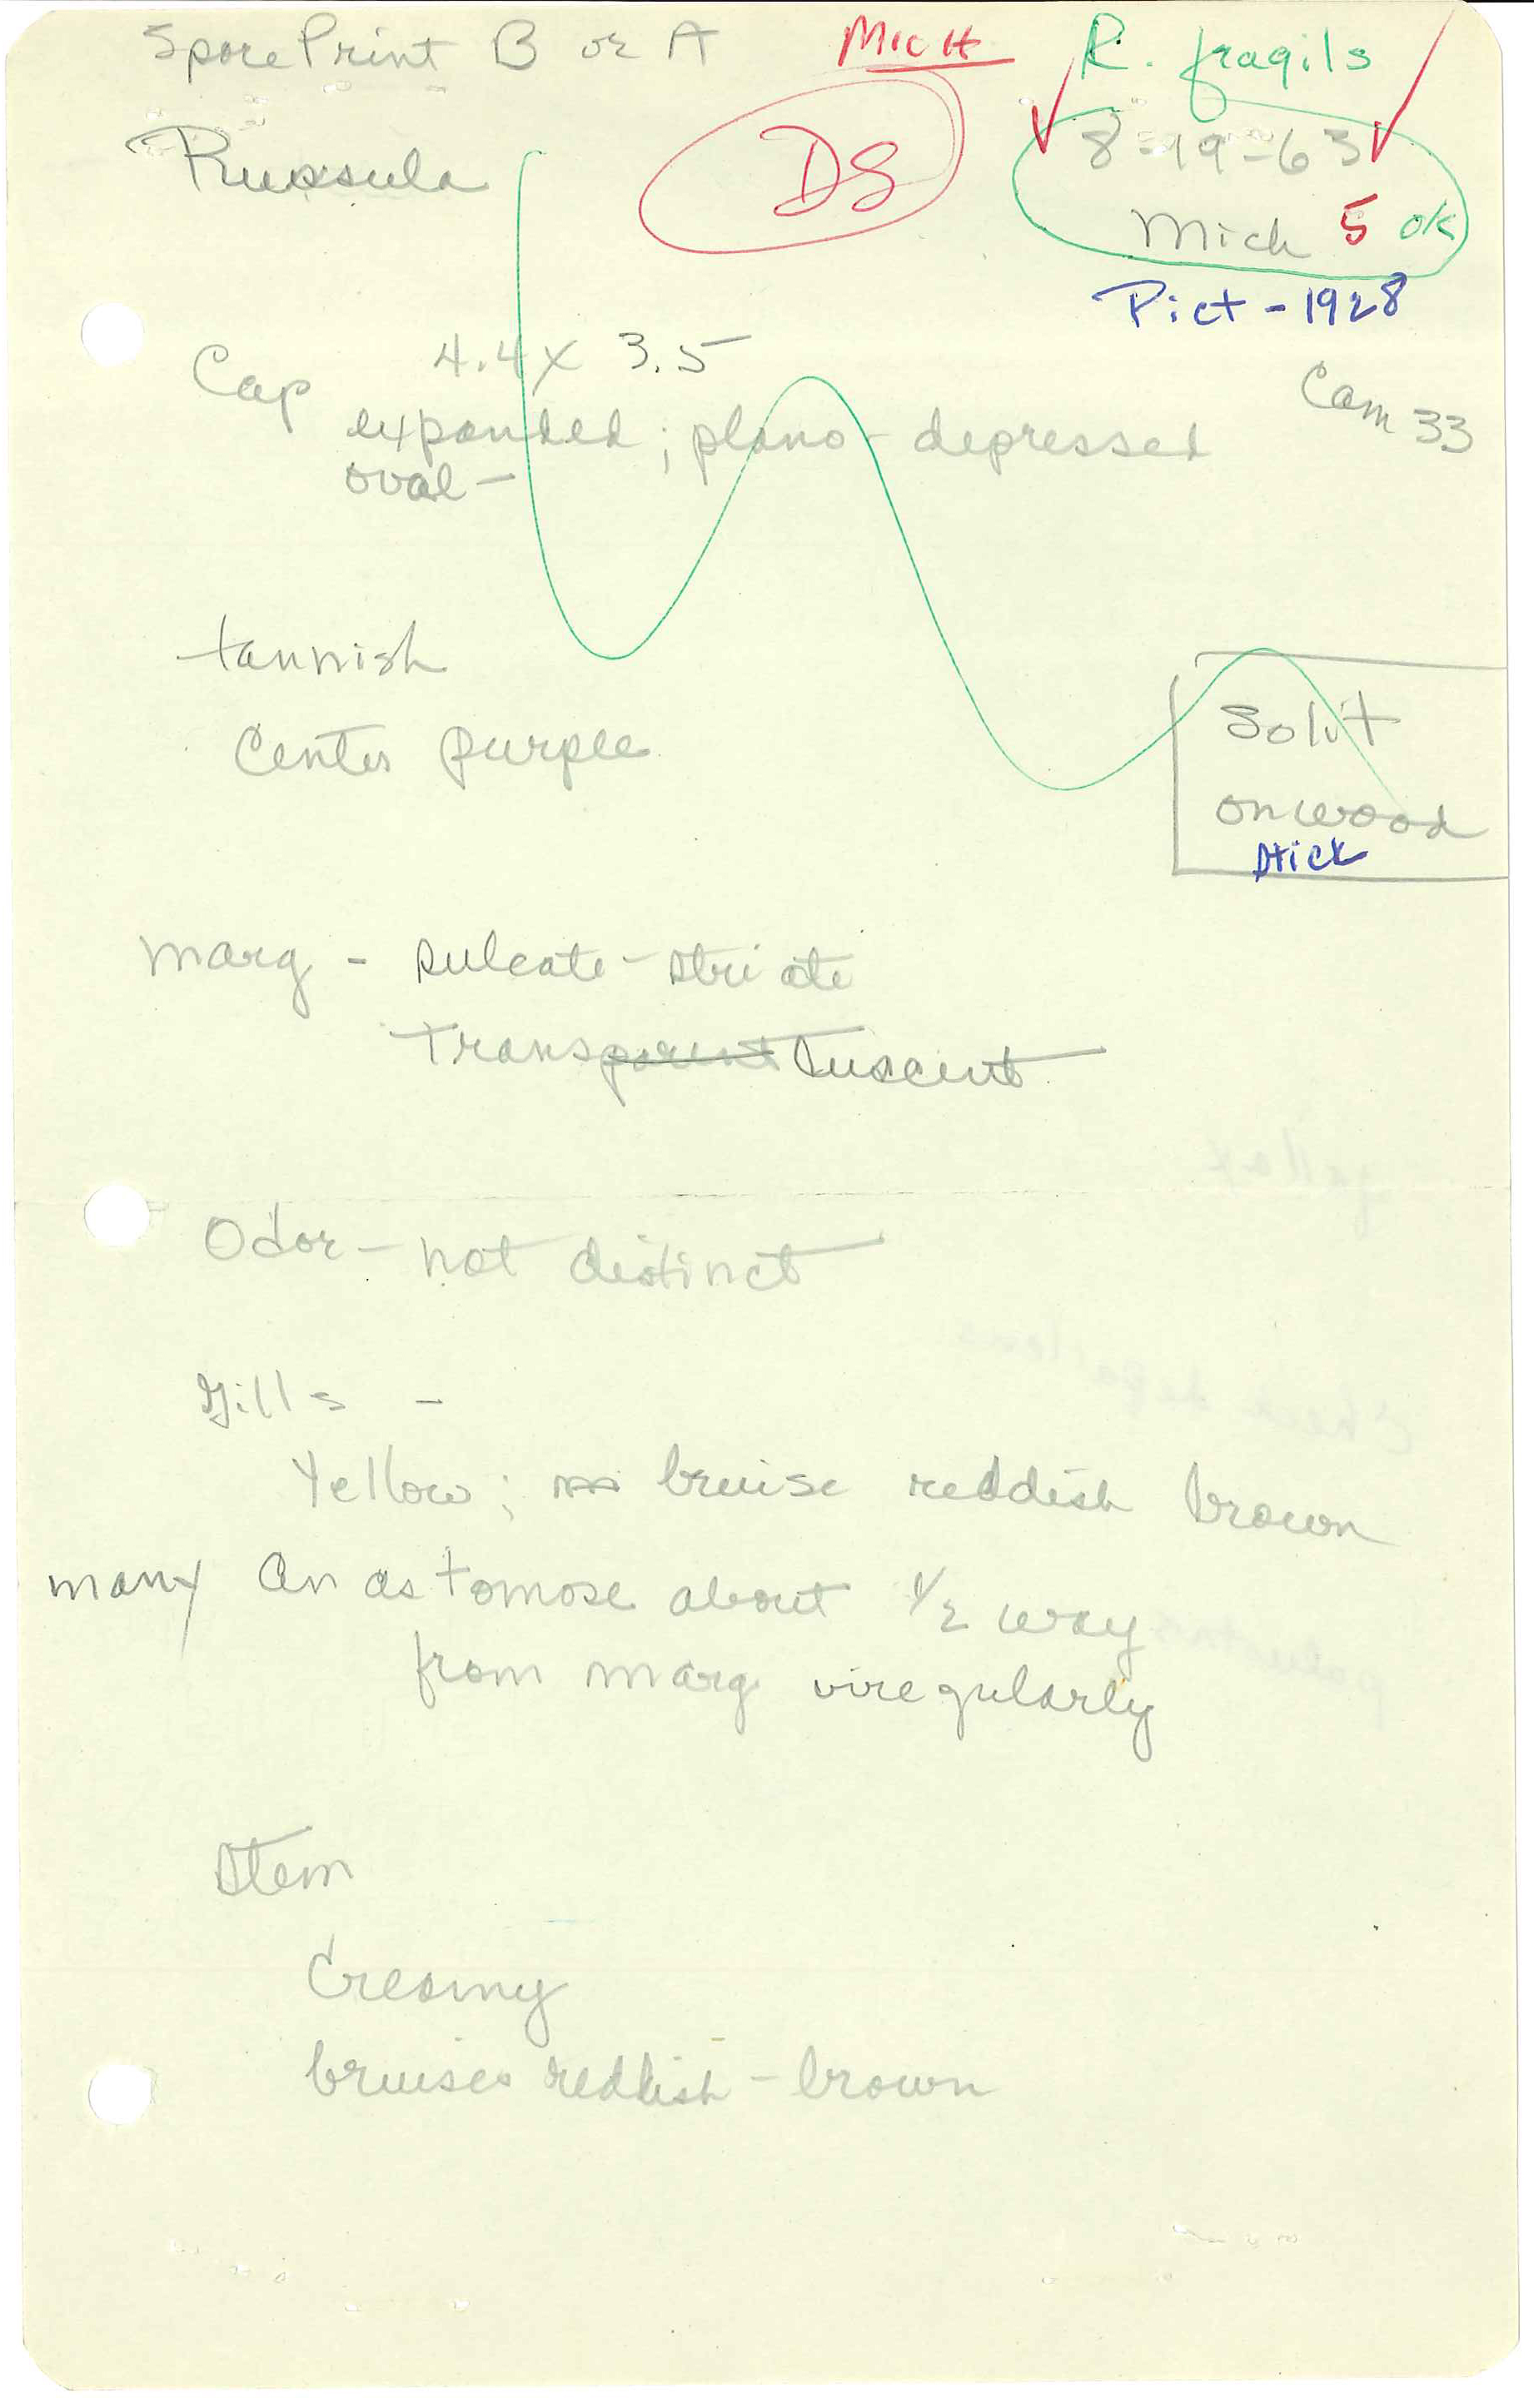 Spore Print B or A
MicH
R. fragils
Russula
DS
8-19-63
Mich 5 ok
Pict - 1928
Cap 4.4 x 3.5
Cam 33
expanded; plano-depressed
oval-
tannish
Center purple
Solit
on wood
stick
marg - sulcate-striate
Transparent luscent
Odor - not distinct
Gills -
Yellow; bruise reddish brown
many anastomose about 1/2 way
from marg irregularly
Stem
Creamy
bruises reddish-brown